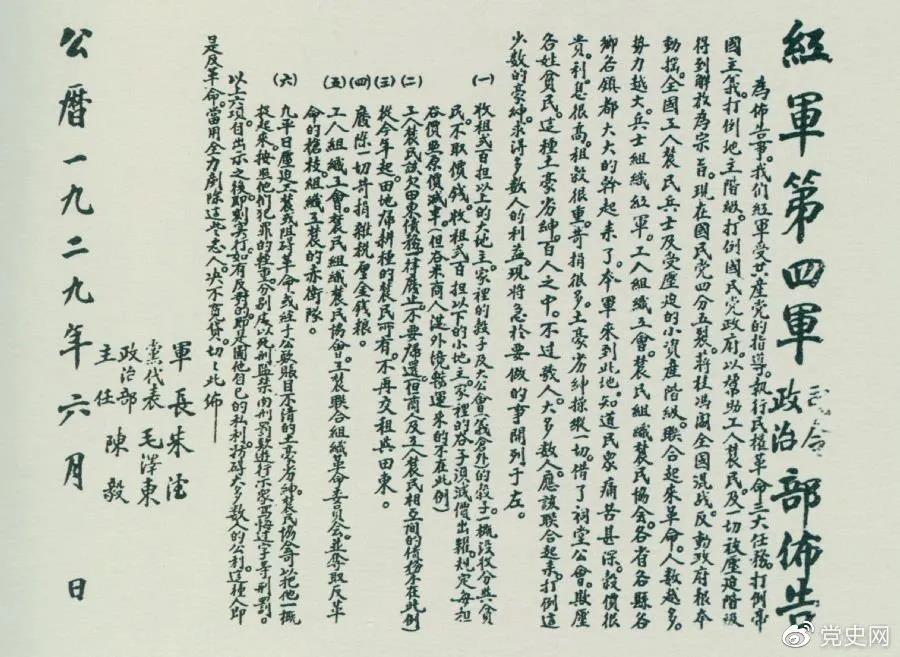 紅軍第四軍司令政治部佈告
為佈告事。我們紅軍受共產党的指導。執行民權革命三大任務。打倒帝
國主義。打倒地主階級。打倒國民党政府。以幫助工人農民及一切被壓迫階級
得到解放為宗旨。現在國民党四分五裂。蔣桂馮閻全國混战。反動政府根本
動搖。全國工人農民兵士及受壓迫的小資產階級。联合起來革命。人數越多。
势力越大。兵士組織紅軍。工人組織工會。農民組織農民協會。各省各縣各
鄉各鎮都大大的幹起來了。本軍來到此地。知道民眾痛苦甚深。穀價很
貴。利息很高。租穀很重。苛捐很多。土豪劣紳操縱一切。借了祠堂公會。欺壓
各姓貧民。這種土豪劣紳。百人之中。不过数人。大多数人。應該联合起來。打倒這
少数的豪紳。求得多数人的利益。現將急於要做的事開列于左。
(一)收租弍百担以上的大地主。家裡的穀子及大公會(義倉外)的穀子一概沒收分與貧
民。不取價钱。收租弍百担以下的小地主。家裡的谷子須減價出糶。規定每担
谷價與原價減半。(但谷米商人從外境辦運來的不在此例)
(二)工人農民該欠田東債務一律廢止。不要歸還(但商人及工人農民相互間的債務不在此例)
(三)從今年起。田地歸耕種的農民所有。不再交租與田東。
(四)廢除一切苛捐雜税厘金錢粮。
(五)工人組織工會。農民組織農民協會。工農联合組織革命委員会。並奪取反革
命的槍枝。組織工農的赤衛隊。
(六)凡平日壓迫工農或阻碍革命。或經手公款賬目不清的土豪劣紳。農民協會可以把他一概
捉起來。按照他们犯罪的輕重。分别處以死刑監禁肉刑罰款遊行示眾寫悔过字等刑罰。
以上六項自出示之後即刻实行。如有反對的。即是圖他自己的私利。妨碍大多数人的公利。這種人即
是反革命。當用全力剷除這些惡人。决不寬貸。切々此佈——
軍長朱德
黨代表毛澤東
政治部主任陳毅
公曆一九二九年六月 日
党史网